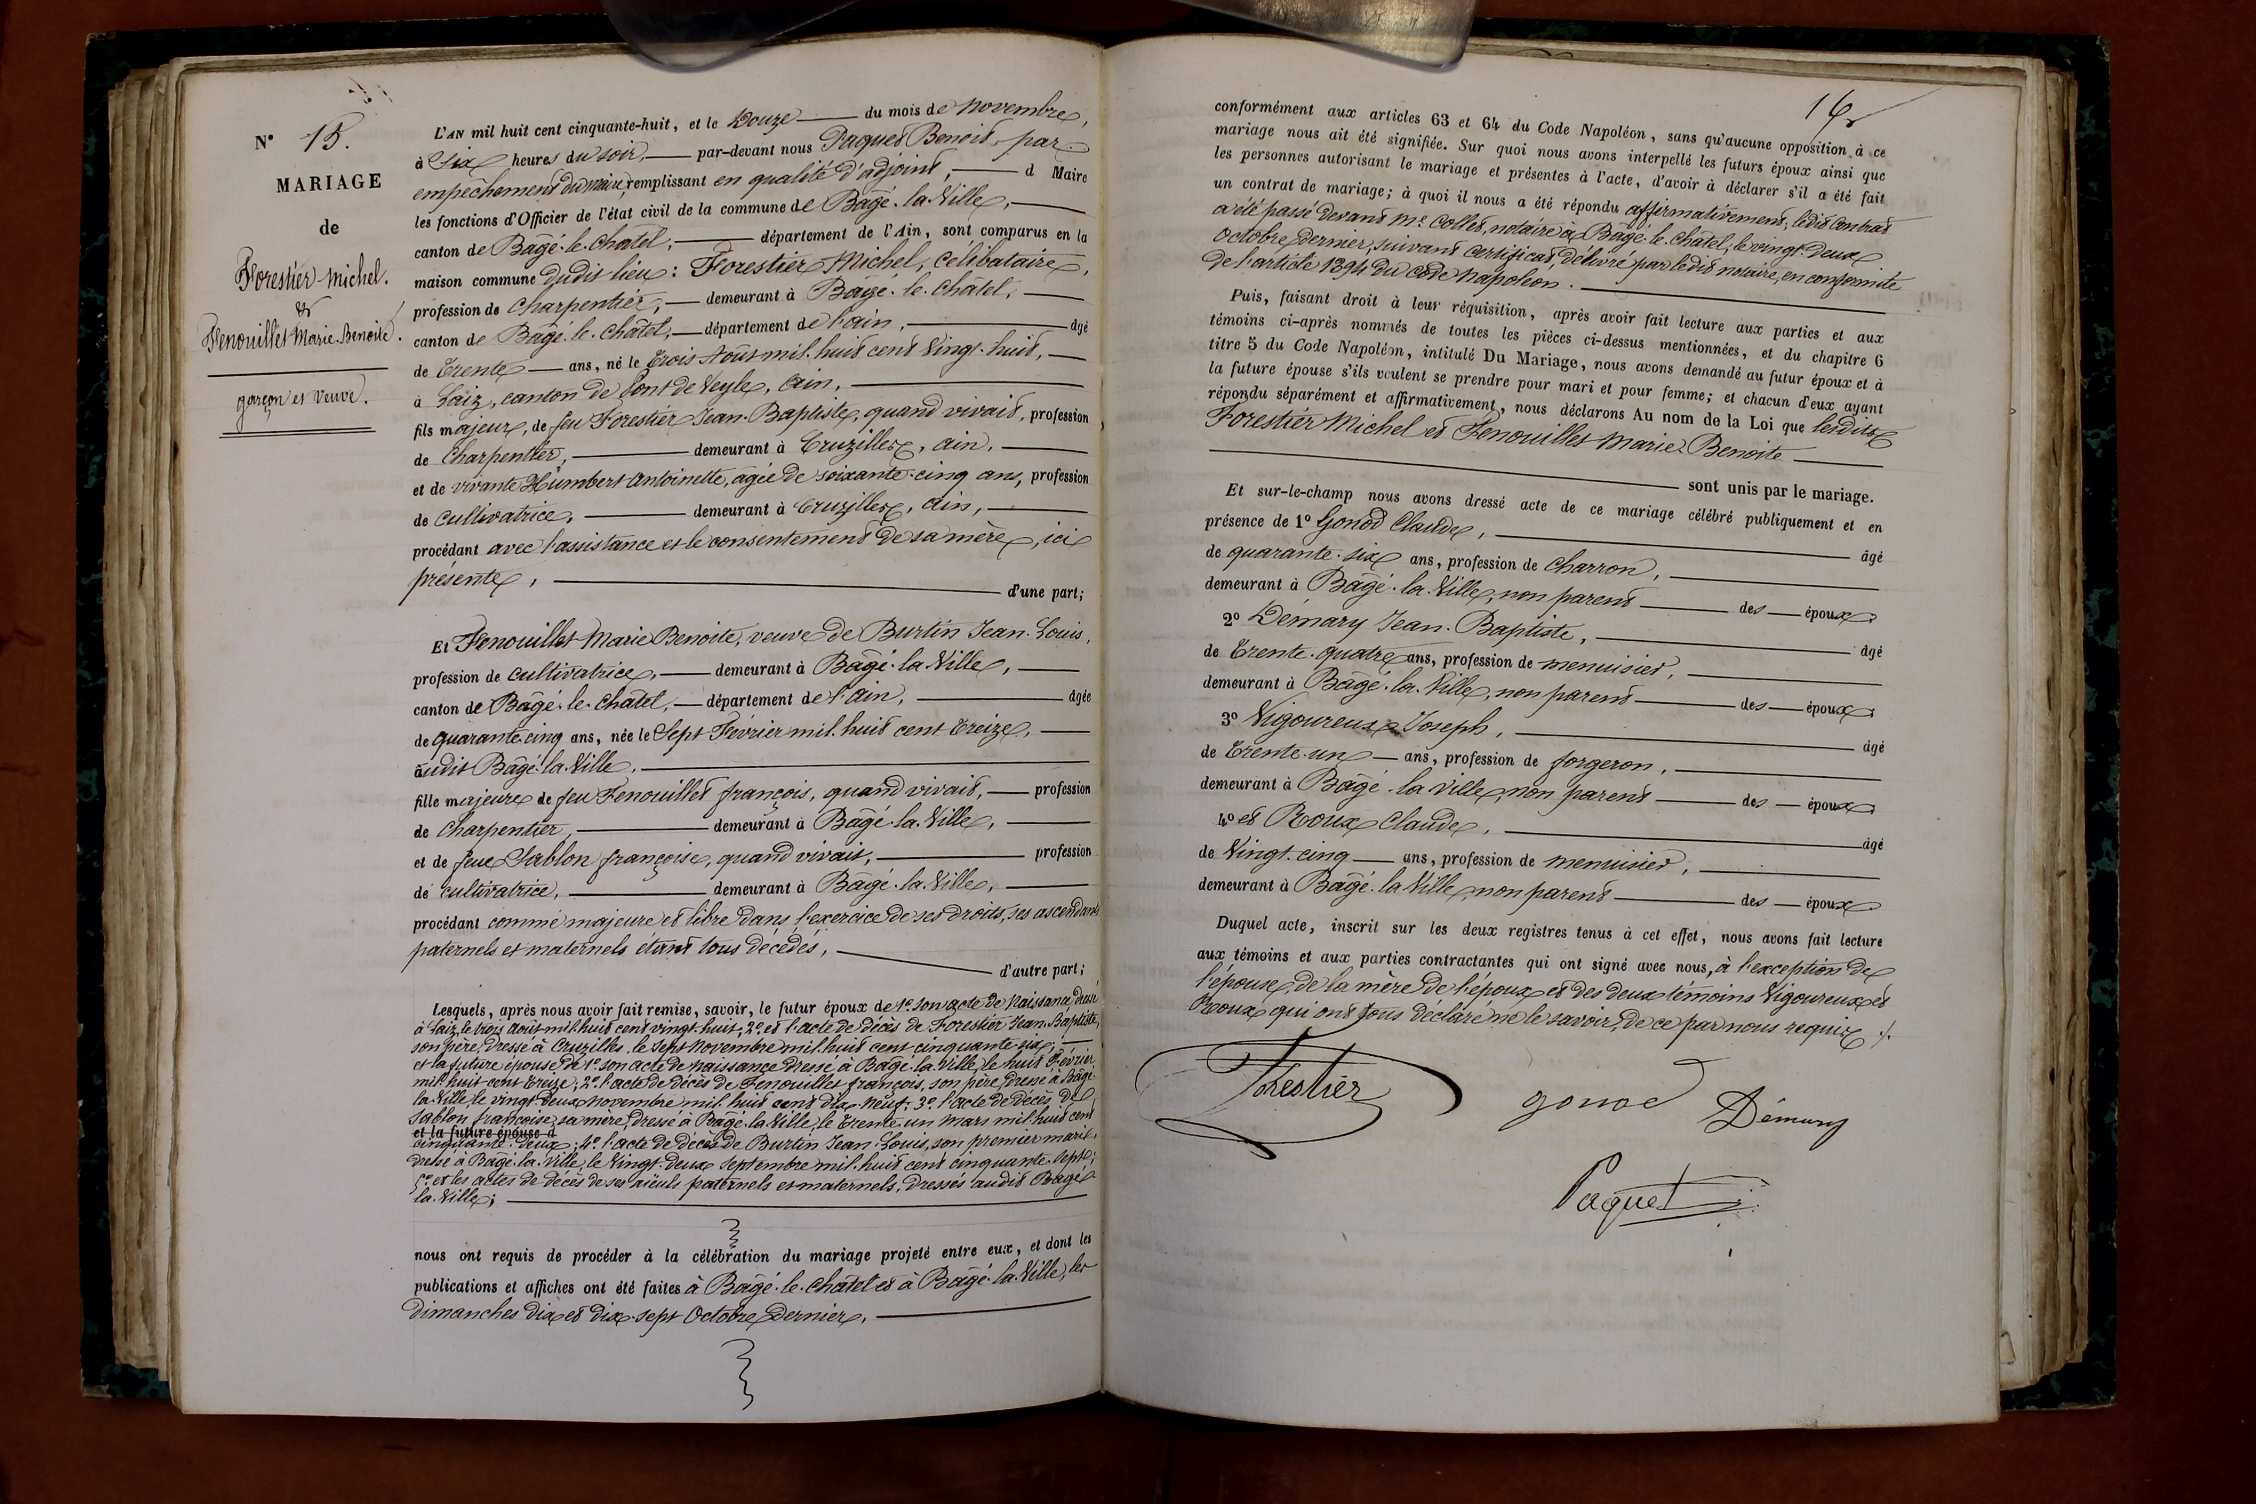 N° 15.
MARIAGE
de
Forestier Michel.
&
Fenouillet Marie Benoite.
garçon et veuve.
L'AN mil huit cent cinquante-huit, et le Douze du mois de novembre,
à Six heures du soir, par-devant nous Paquet Benoit, par
empêchement du maire, remplissant en qualité d'adjoint, d Maire
les fonctions d'Officier de l'état civil de la commune de Bâgé-la-Ville,
canton de Bâgé-le-Chatel, département de l'Ain, sont comparus en la
maison commune dudit lieu : Forestier Michel, célibataire,
profession de charpentier, demeurant à Bâgé-le-Chatel,
canton de Bâgé-le-Châtel, département de l'ain, âgé
de Trente ans, né le trois Août mil huit cent vingt-huit,
à Laiz, canton de Pont de Veyle, Ain,
fils majeur, de feu Forestier Jean-Baptiste, quand vivait, profession
de Charpentier, demeurant à Cruzilles, ain,
et de vivante Humbert Antoinette, âgée de soixante-cinq ans, profession
de cultivatrice, demeurant à Cruzilles, ain,
procédant avec l'assistance et le consentement de sa mère, ici
présente, d'une part;
Et Fenouillet Marie Benoite, veuve de Burtin Jean-Louis,
profession de cultivatrice, demeurant à Bâgé-la-Ville,
canton de Bâgé-le-Châtel, département de l'ain, âgée
de quarante-cinq ans, née le Sept Février mil huit cent treize,
audit Bâgé-la-Ville,
fille majeure de feu Fenouillet françois, quand vivait, profession
de charpentier, demeurant à Bâgé-la-Ville,
et de feue Sablon françoise, quand vivait, profession
de cultivatrice, demeurant à Bâgé-la-Ville,
procédant comme majeure et libre dans l'exercice de ses droits, ses ascendants
paternels et maternels étant tous décédés,
d'autre part;
Lesquels, après nous avoir fait remise, savoir, le futur époux de 1° son acte de Naissance, dressé
à Laiz, le trois août mil huit cent vingt-huit; 2° et l'acte de décès de Forestier Jean-Baptiste,
son père, dressé à Cruzilles, le sept novembre mil huit cent cinquante-six;
et la future épouse, de 1° son acte de naissance dressé à Bâgé-la-Ville, le huit Février
mil huit cent treize; 2° l'acte de décès de Fenouillet françois, son père, dressé à Bâgé-
la-Ville, le vingt-deux novembre mil huit cent dix-neuf; 3° l'acte de décès de
Sablon françoise, sa mère, dressé à Bâgé-la-Ville, le trente-un Mars mil huit cent
et la future épouse d
cinquante-deux; 4° l'acte de décès de Burtin Jean-Louis, son premier mari,
dressé à Bâgé-la-Ville, le Vingt-deux Septembre mil huit cent cinquante-sept;
5° et les actes de décès de ses aïeuls paternels et maternels, dressés audit Bâgé-
la-Ville;
nous ont requis de procéder à la célébration du mariage projeté entre eux, et dont les
publications et affiches ont été faites à Bâgé-le-Châtel et à Bâgé-la-Ville, les
dimanches dix et dix-sept Octobre dernier,
16
conformément aux articles 63 et 64 du Code Napoléon, sans qu'aucune opposition à ce
mariage nous ait été signifiée. Sur quoi nous avons interpellé les futurs époux ainsi que
les personnes autorisant le mariage et présentes à l'acte, d'avoir à déclarer s'il a été fait
un contrat de mariage; à quoi il nous a été répondu affirmativement; ledit contrat
a été passé devant Me Collet, notaire à Bâgé-le-Châtel, le vingt-deux
Octobre dernier, suivant certificat délivré par ledit notaire, en conformité
de l'article 1394 du Code Napoléon.
Puis, faisant droit à leur réquisition, après avoir fait lecture aux parties et aux
témoins ci-après nommés de toutes les pièces ci-dessus mentionnées, et du chapitre 6
titre 5 du Code Napoléon, intitulé Du Mariage, nous avons demandé au futur époux et à
la future épouse s'ils veulent se prendre pour mari et pour femme; et chacun d'eux ayant
répondu séparément et affirmativement, nous déclarons Au nom de la Loi que lesdits
Forestier Michel et Fenouillet Marie Benoite
sont unis par le mariage.
Et sur-le-champ nous avons dressé acte de ce mariage célébré publiquement et en
présence de 1° Gonod Claude, âgé
de quarante-six ans, profession de charron,
demeurant à Bâgé-la-Ville, non parent des époux
2° Démary Jean-Baptiste, âgé
de Trente-quatre ans, profession de menuisier,
demeurant à Bâgé-la-Ville, non parent des époux
3° Vigoureux Joseph, âgé
de Trente-un ans, profession de forgeron,
demeurant à Bâgé-la-Ville, non parent des époux
4° et Roux Claude, âgé
de Vingt-cinq ans, profession de menuisier,
demeurant à Bâgé-la-Ville, non parent des époux
Duquel acte, inscrit sur les deux registres tenus à cet effet, nous avons fait lecture
aux témoins et aux parties contractantes qui ont signé avec nous, à l'exception de
l'épouse, de la mère de l'époux et des deux témoins Vigoureux et
Roux qui ont tous déclaré ne le savoir, de ce par nous requis.
Forestier gonod Démary
Paquet